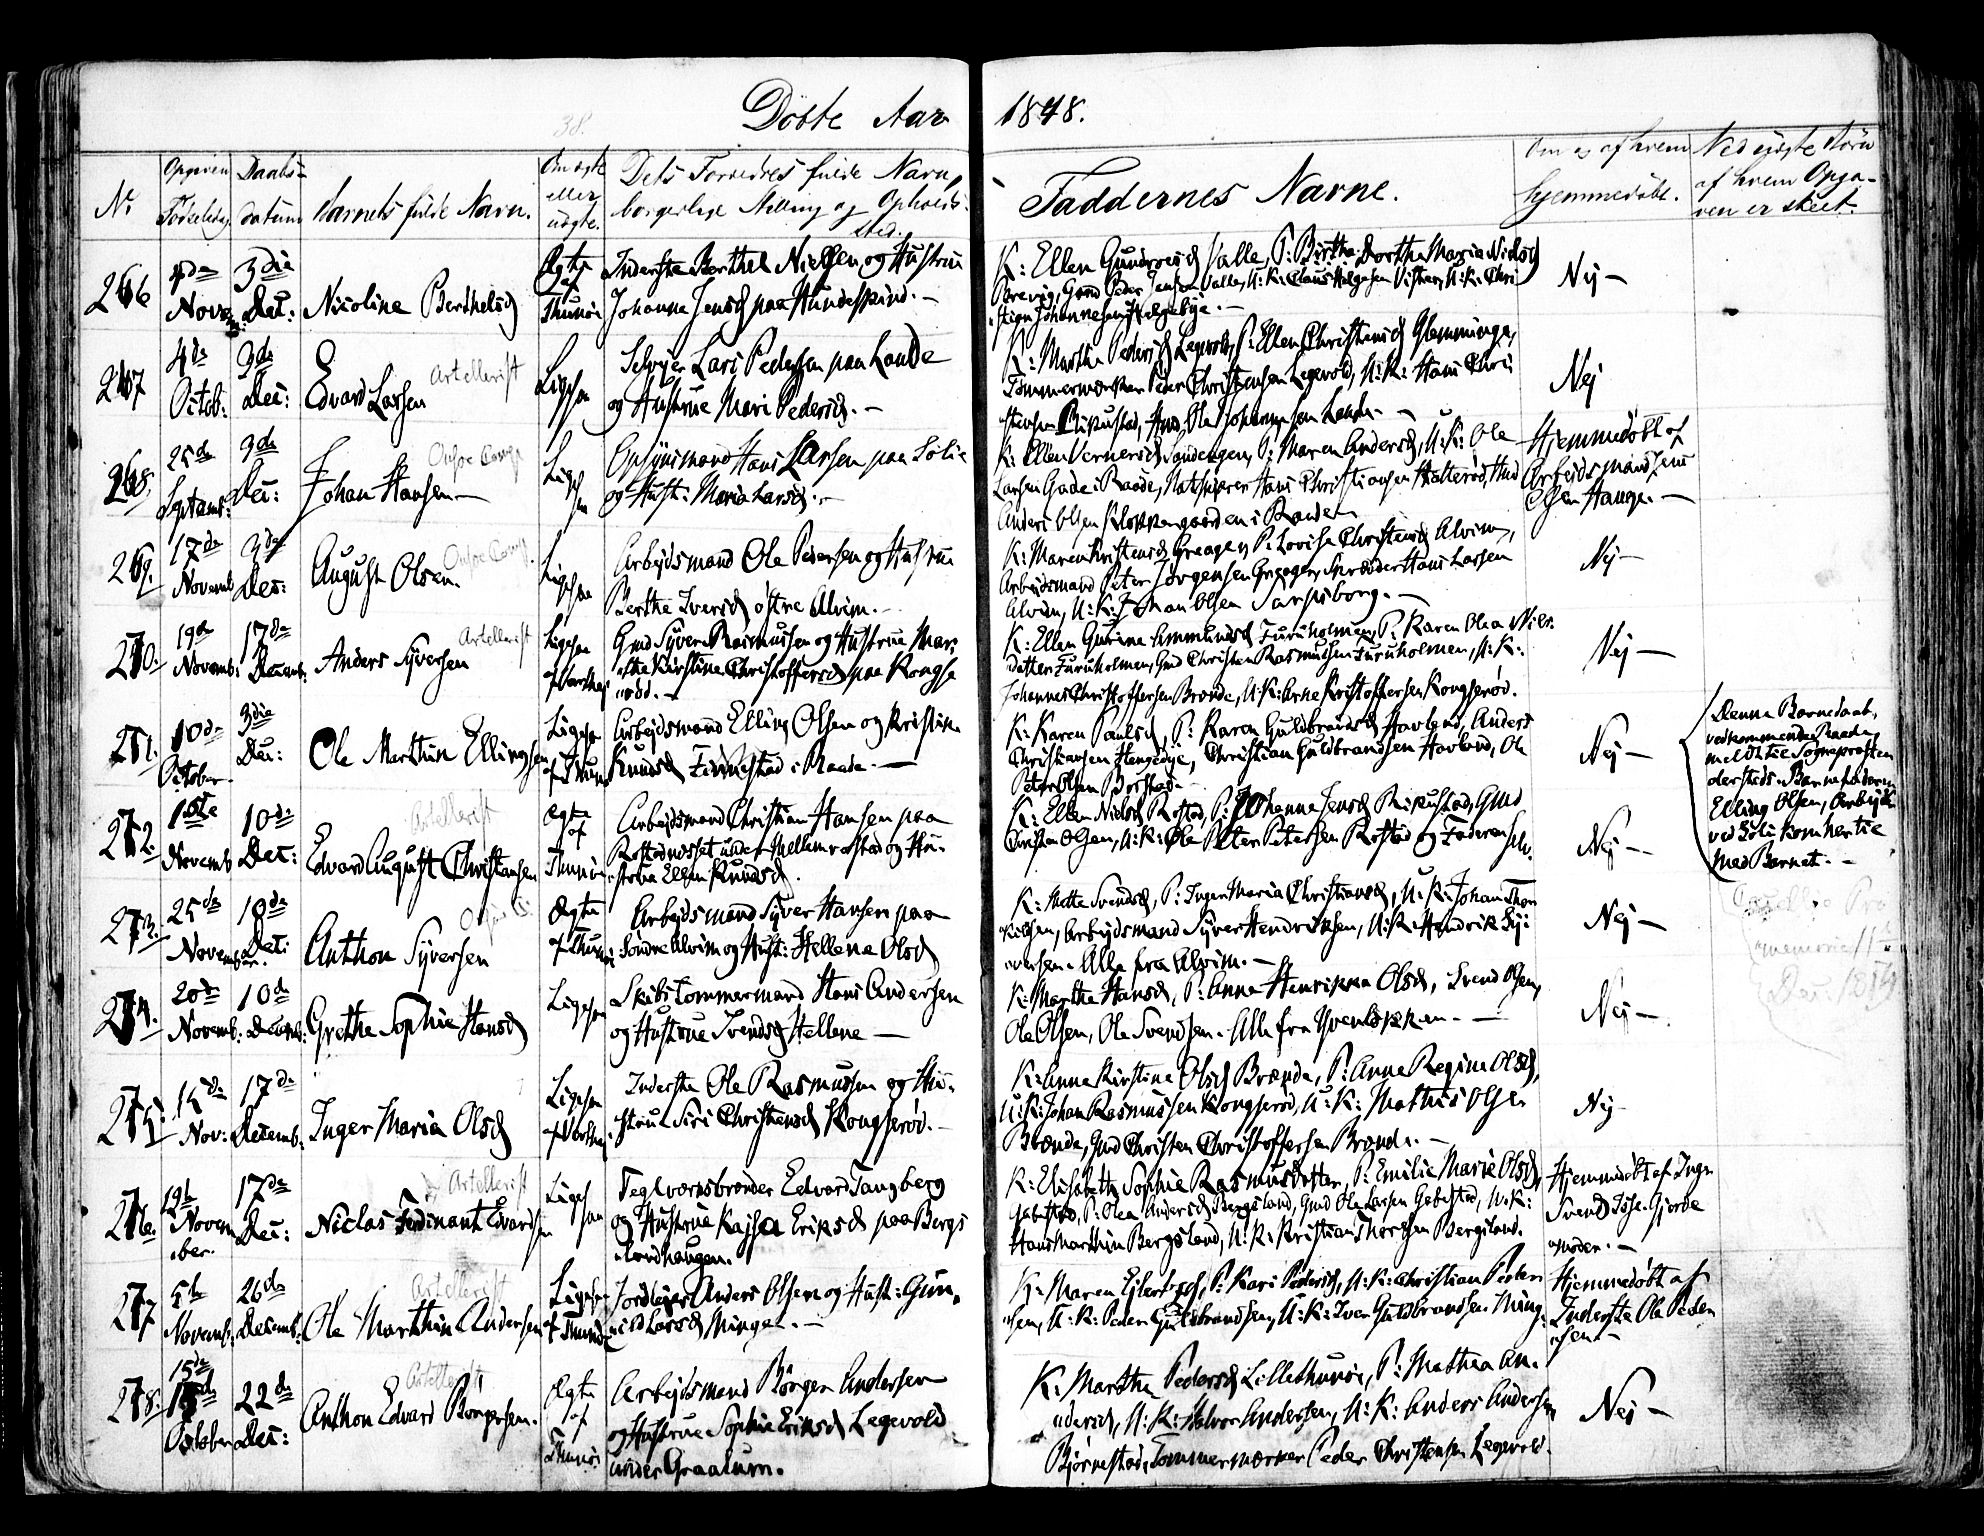 38.
Döbte Aar 1848.
No
Opgiven Fødselsdag
Daabsdatum
Barnets fulde Navn.
Om ægte eller uægte.
Dets Forældres fulde Navn, borgerlige Stilling og Opholdssted.
Faddernes Navne.
Om og af hvem hjemmedöbt.
Ved uægte Börn af hvem Opgaven er skeet.
266
Novem: 3die Dec:
Nicoline Berthelsd
Ægte af Thunöe
Inderste Berthel Nielsen og Hustrue
Johanna Jensd paa Hundeskind. —
K: Ellen Gundersd Valle, P: Birthe Dorthea Maria Nielsd
Brevig, Gmd Peder Jensen Valle, U: K: Claus Helgesen Visten, U: K: Chri
stian Johannesen Helgebye. —
Nej —
267
4de Octob: 3de Dec:
Edvard Larsen
Artellerist
Ligesaa
Selveier Lars Pedersen paa Lande
og Hustrue Mari Pedersd. —
K: Marthe Pedersd Legevold, P: Ellen Christensd Glemminge,
Tömmermærker Peder Christensen Legevold, U: K: Hans Chri
stensen Rikustad, Gmd Ole Johannesen Lande. —
Nej
268.
25de Septemb: 3de Dec:
Johan Hansen —
Onsøe Comp
Ligesaa
Opsynsmand Hans Larsen paa Solie
og Hust: Maria Larsd. —
K: Ellen Vernersd Sandengen, P: Maren Andersd, U: K: Ole
Larsen Gade i Raade, Natspærer Hans Christiansen Hatteröd, Gmd
Anders Olsen Klokkergaarden i Raade —
Hjemmedöbt af
Arbejdsmand Jens
Olsen Hauge. —
269.
17de Novemb 3de Dec:
August Olsen.
Onsøe Comp.
Ligesaa
Arbejdsmand Ole Pedersen og Hustrue
Berthe Iversd östre Alvim. —
K: Maren Kristensd Greager, P: Lovise Christensd Alvim,
Arbejdsmand Peter Jörgensen Greager, Skrædder Hans Larsen
Alvim, U: K: Johan Olsen Sarpsborg. —
Nej —
270.
19de Novemb: 17de Decemb:
Anders Syversen
Artellerist
Ligesaa af Varteig
Gmd Syver Rasmussen og Hustrue Mar:
the Kirstine Christoffersd paa Kongse
röd. —
K: Ellen Gurine Ammundsd Furuholmen, P: Karen Olea Nils:
datter Furuholmen, Gmd Christen Rasmussen Furuholmen, U: K:
Johannes Christoffersen Brænde, U: K: Arne Kristoffersen Kongseröd.
Nej —
271.
10de October 3die Dec:
Ole Marthin Ellingsen
Ligesaa af Thunöe
Arbejdsmand Elling Olsen og Kristine
Knudsd Finnestad i Raade. —
K: Karen Paulsd, P: Karen Guldbrandsd Havland, Anders
Christiansen Hengebye, Christian Guldbrandsen Havland, Ole
Peter Olsen Borstad. —
Nej —
Denne Barnedaab,
vedkommende Raade,
meldt til Sognepræsten
dersteds. Barnefaderen
Elling Olsen, Arbejder
ved Soli kom hertil
med Barnet. —
272.
1ste Novemb 10de Dec:
Edvard August Christiansen
Artellerist
Ægte af Thunöe
Arbejdsmand Christian Hansen paa
Rostadnæsset under Mellemrostad og Hu-
strue Ellen Knudsd.
K: Ellen Nielsd Rostad, P: Johanna Jensd Rikustad, Gmd
Christen Olsen, U: K: Ole Peter Petersen Rostad og Faderen selv.
Nej —
273.
25de November 10de Dec:
Anthon Syversen
Ægte af Thunöe
Arbejdsmand Syver Hansen paa
Söndre Alvim og Hust: Hellene Olsd
K: Mette Svendsd, P: Inger Maria Christiansd, U: K: Johan Thor
kilsen, Arbejdsmand Syver Hendriksen, U: K: Hendrik Sy:
versen. Alle fra Alvim. —
Nej —
274.
20de Novemb: 10de Decemb:
Grethe Sophie Hansd
Ligesaa
Skibstömmermand Hans Andersen
og Hustrue Svendsd Hellene —
K: Marthe Hansd, P: Anne Henrikka Olsd, Svend Olsen,
Ole Olsen, Ole Svendsen. Alle fra —
Nej —
275.
Nov: 17de Decemb:
Inger Maria Olsd
Ligesaa af Varteig
Inderste Ole Rasmussen og Hu-
strue Siri Christensd Kongseröd. —
K: Anne Kirstine Olsd Brænde, P: Anne Regine Olsd,
U: K: Johan Rasmussen Kongseröd, U: K: Mathis Olsen
Brænde, Gmd Christen Christoffersen Brænde. —
Nej
276.
19de November 17de Dec:
Niclas Ferdinant Edvardsen
Artellerist
Ligesaa
Teglværksbrænder Edvard Tangberg
og Hustrue Kajsa Eriksd paa Bergs
landhaugen.
K: Elisabeth Sophie Rasmusdatter, P: Emilie Marie Olsd
Gabestad, P: Olea Andersd Bergsland, Gmd Ole Larsen Gabestad, U: K:
Hans Marthin Bergsland, U: K: Kristian Thorsen Bergsland.
Hjemmedöbt af Inge
Svendsd Gjorde
moder. —
277
5te Novemb: 26de Decemb:
Ole Marthin Andersen
Artellerist
Ligesaa af Thunöe
Jordleier Anders Olsen og Hust: Gun-
nild Larsd Minge. —
K: Maren Ejlertsd, P: Kari Pedersd, U: K: Christian Peder
sen, U: K: Peder Guldbrandsen, U: K: Iver Guldbrandsen Minge
Hjemmedöbt af
Inderste Ole Peder
sen —
278.
15de October 22de Dec:
Anthon Edvard Börgersen.
Artellerist
Ægte af Thunöe
Arbejdsmand Börger Andersen
og Hustrue Sophie Eriksd Legevold
under Graalum.
K: Marthe Pedersd Lillethunöe, P: Mathea An-
dersd, U: K: Halvor Andersen, U: K: Anders Andersen
Björnestad, Tömmermærker Peder Christensen Legevold.
Nej —